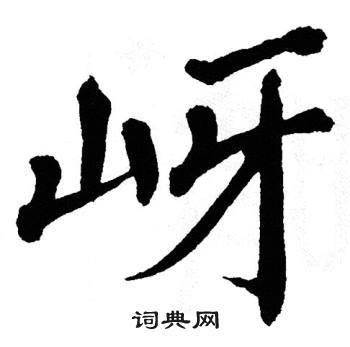 岈
词典网